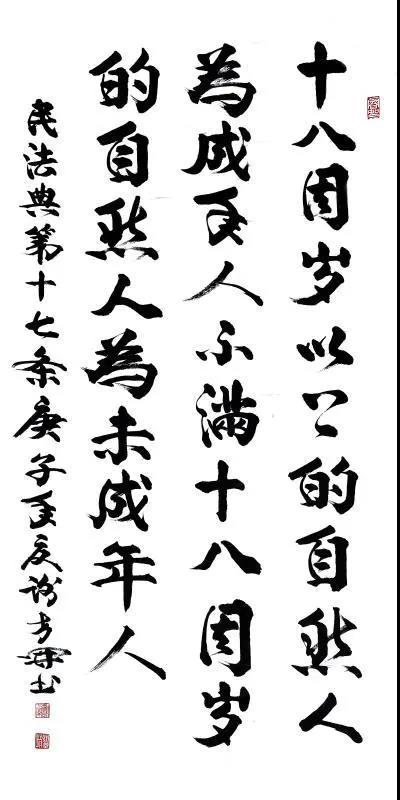 十八周岁以上的自然人
為成年人不满十八周岁
的自然人為未成年人
民法典第十七条庚子年夏谢方书